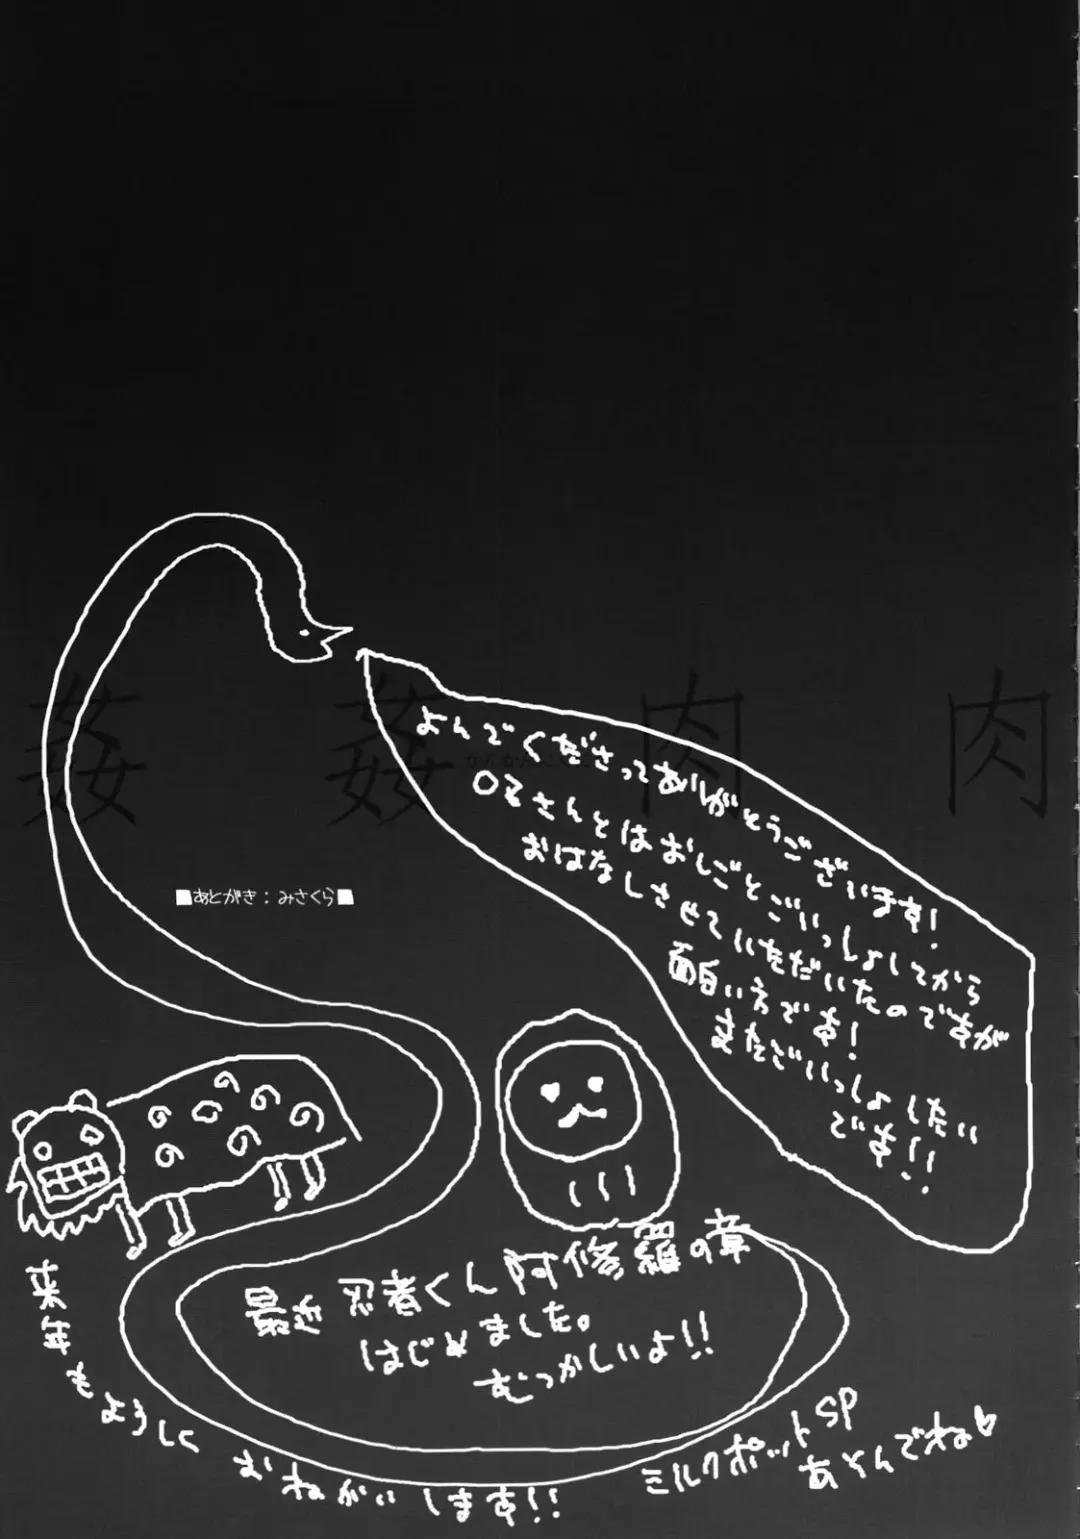 姦 姦 肉 肉
よんでくださってありがとうございます!
OZさんとはおしごとごいっしょしてから
おはなしさせていただいたのですが
面白い方です!
またごいっしょしたい
です!!
■あとがき:みさくら■
最近 忍者くん 阿修羅の章
はじめました。
むつかしいよ!!
来年もようしく おねがいします!!
ミルクポットSP
あそんでね♡